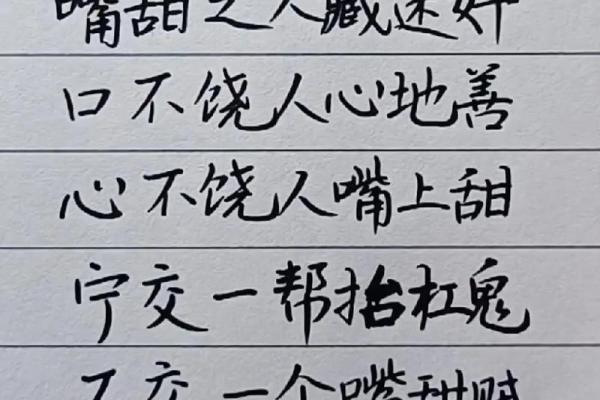 嘴甜之人藏迷奸
口不饶人心地善
心不饶人嘴上甜
宁交一帮抬杠鬼
不交一个嘴甜贼